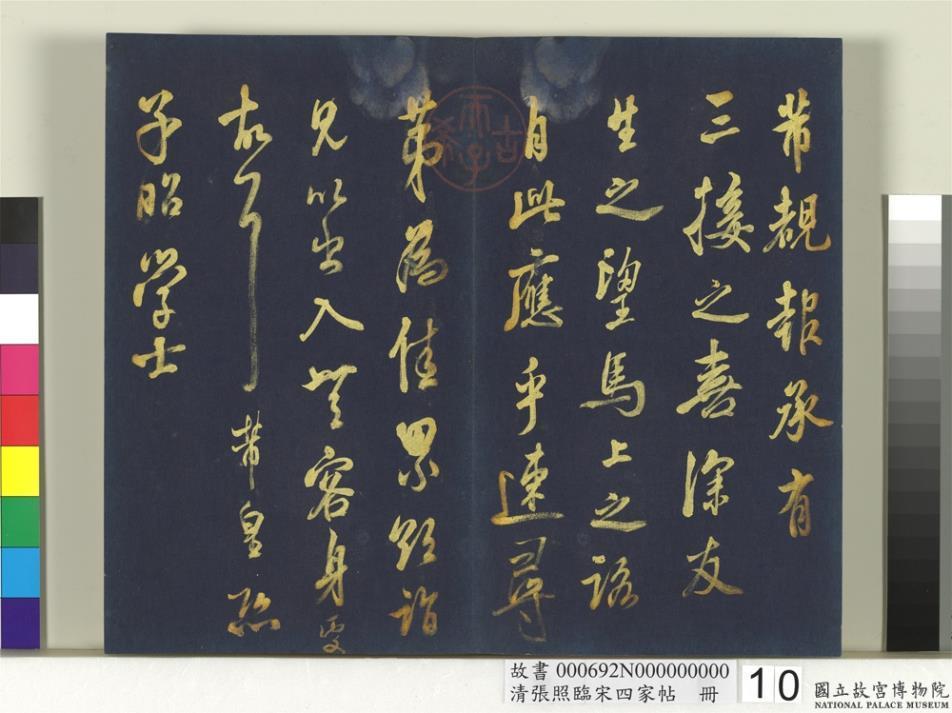 芾覩報承有
三接之喜深友
生之望馬上之詠
自此應乎速尋
第為佳累欲詣
見以出入無客身
故耳芾皇恐
子昭學士
古希天子
故書 000692N000000000
清張照臨宋四家帖 冊
10
國立故宮博物院
NATIONAL PALACE MUSEUM